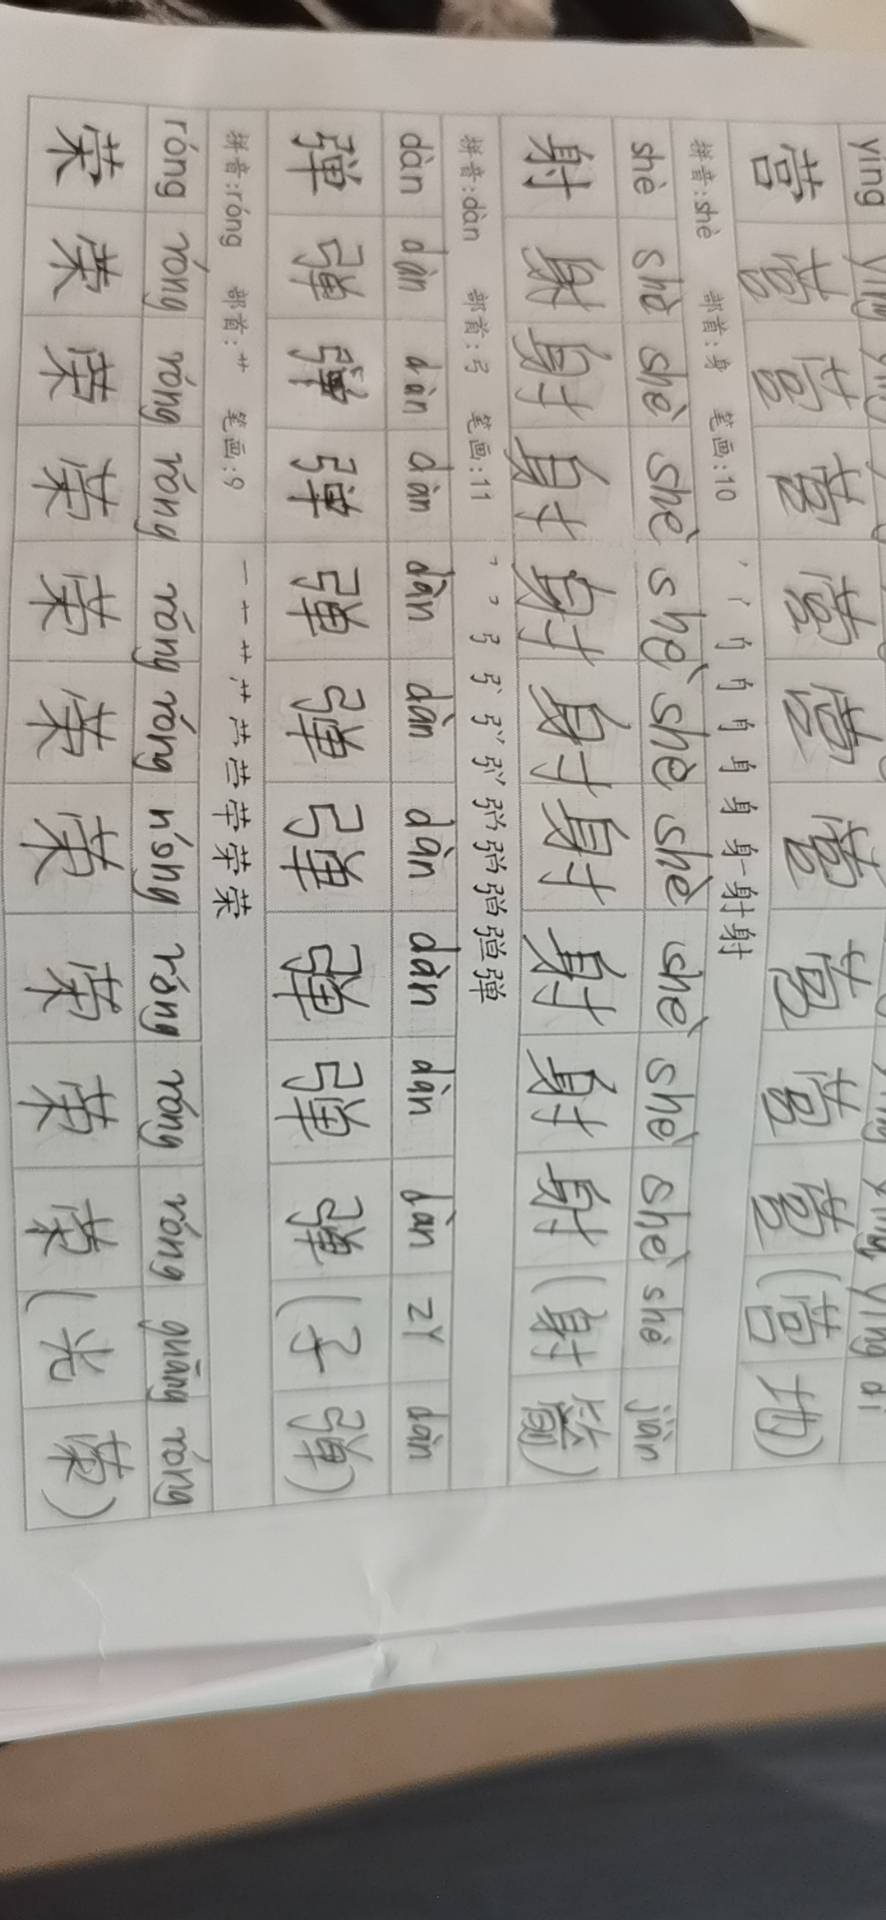 yíng yíng yíng yíng dì
营 营 营 营 营 营 营 营 营 营 (营 地)
拼音:shè 部首:身 笔画:10 身 身 射 射
shè shè shè shè shè shè shè shè shè shè shè jiàn
射 射 射 射 射 射 射 射 射 射 (射 箭)
拼音:dàn 部首:弓 笔画:11 弹
dàn dàn dàn dàn dàn dàn dàn dàn dàn dàn zǐ dàn
弹 弹 弹 弹 弹 弹 弹 弹 弹 弹 (子 弹)
拼音:róng 部首:艹 笔画:9 一 十 艹 荣
róng róng róng róng róng róng róng róng róng róng guāng róng
荣 荣 荣 荣 荣 荣 荣 荣 荣 荣 (光 荣)